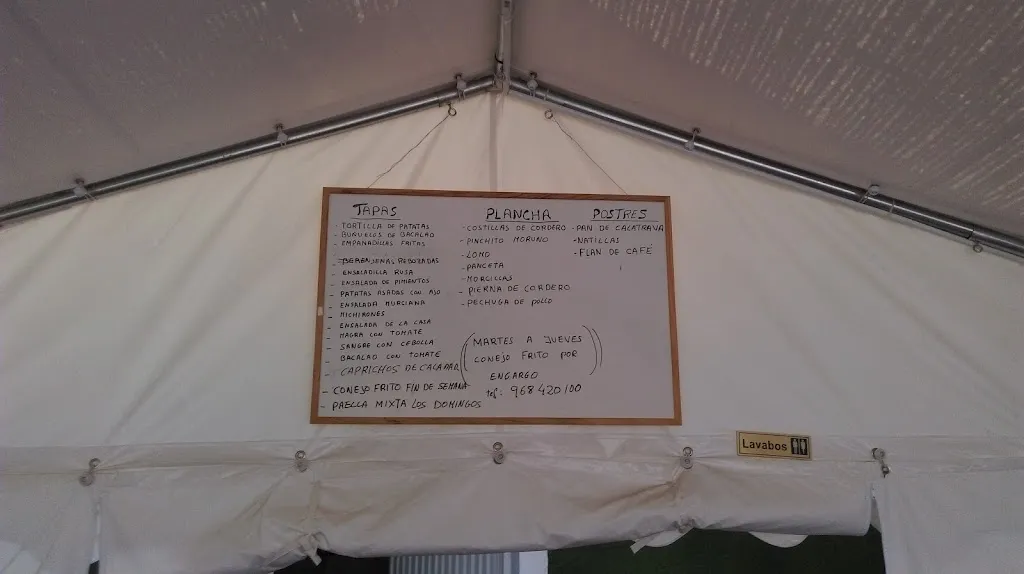 TAPAS
- TORTILLA DE PATATAS
- BUÑUELOS DE BACALAO
- EMPANADILLAS FRITAS
- BERENJENAS REBOZADAS
- ENSALADILLA RUSA
- ENSALADA DE PIMIENTOS
- PATATAS ASADAS CON AJO
- ENSALADA MURCIANA
- MICHIRONES
- ENSALADA DE LA CASA
- MAGRA CON TOMATE
- SANGRE CON CEBOLLA
- BACALAO CON TOMATE
- CAPRICHOS DE
- CONEJO FRITO FIN DE SEMANA
- PAELLA MIXTA LOS DOMINGOS
PLANCHA
- COSTILLAS DE CORDERO
- PINCHITO MORUNO
- LOMO
- PANCETA
- MORCILLAS
- PIERNA DE CORDERO
- PECHUGA DE POLLO
(MARTES A JUEVES
CONEJO FRITO POR
ENCARGO
tef: 968 420 100
POSTRES
- PAN DE CACATRAVA
- NATILLAS
- FLAN DE CAFÉ
Lavabos